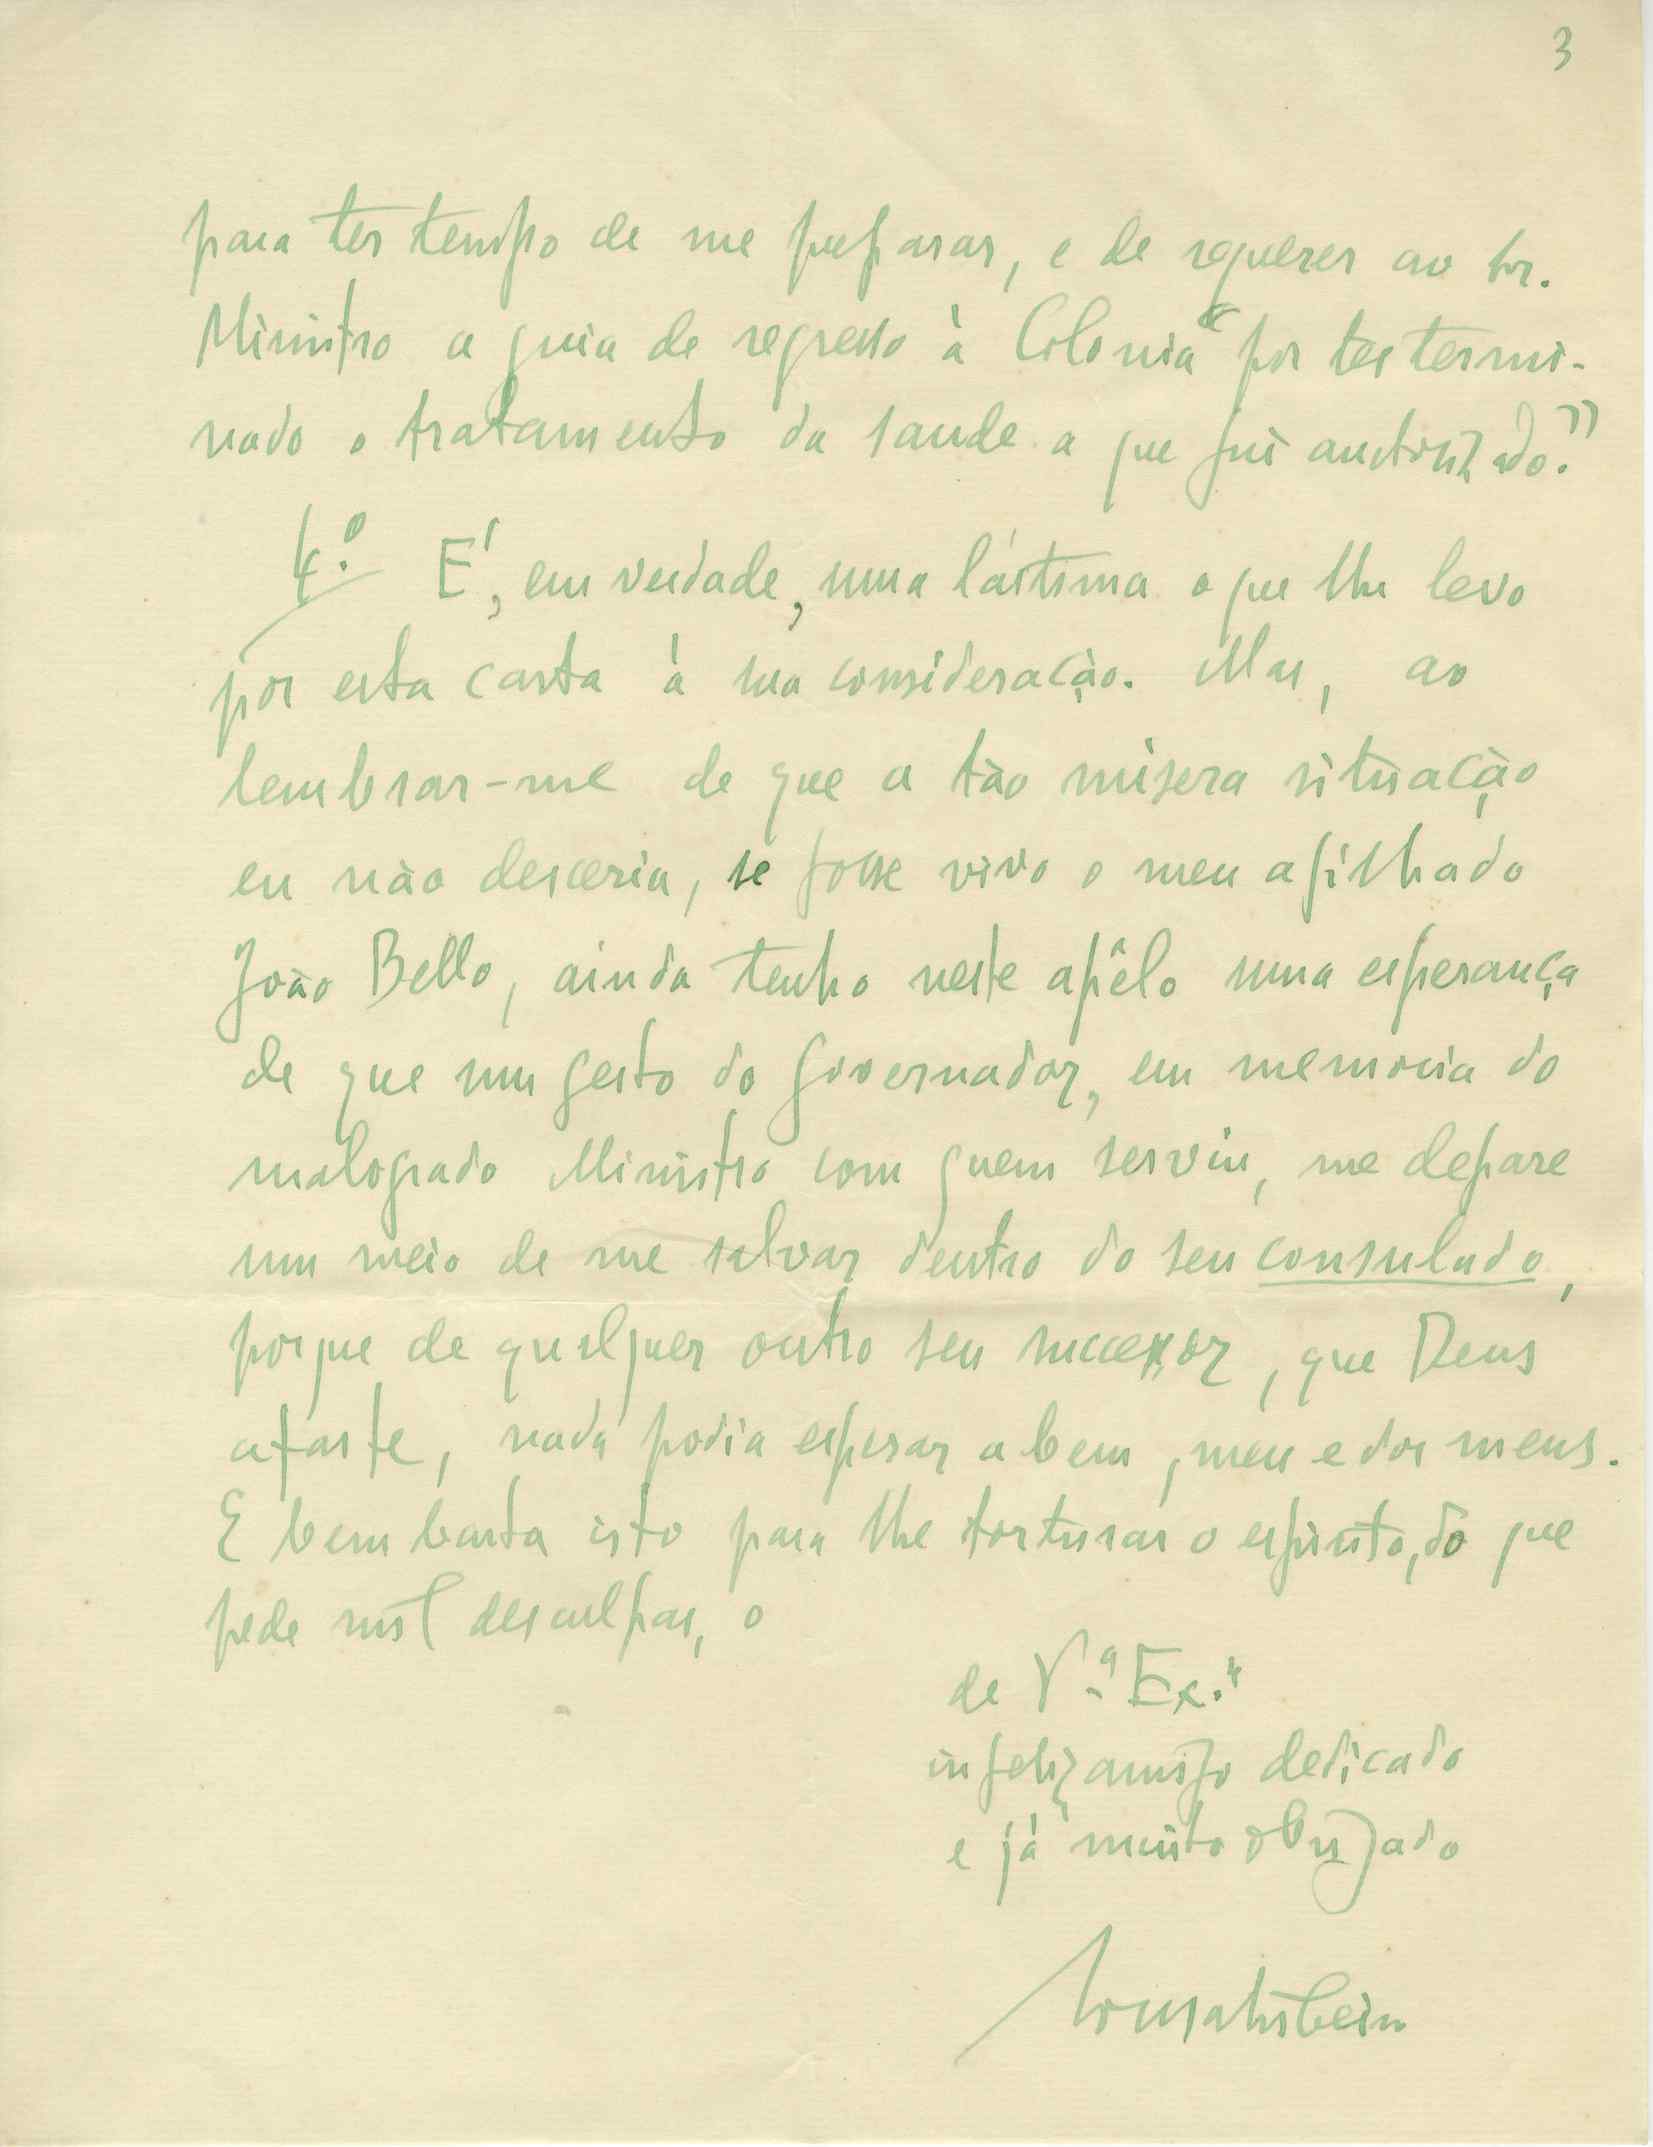 3
para ter tempo de me preparar, e de requerer ao Sr.
Ministro a guia de regresso à Colonia "por ter termi-
nado o tratamento da saude a que fui auctorizado."
4.º E', em verdade, uma lástima o que lhe levo
por esta carta à sua consideração. Mas, ao
lembrar-me de que a tão misera situação
eu não desceria, se fosse vivo o meu afilhado
João Bello, ainda tenho neste apêlo uma esperança
de que um gesto do Governador, em memoria do
malogrado Ministro com quem serviu, me depare
um meio de me salvar dentro do seu consulado,
porque de qualquer outro seu successor, que Deus
afaste, nada podia esperar a bem, meu e dos meus.
E bem basta isto para lhe torturar o espirito, do que
pede mil desculpas, o
de V.ª Ex.ª
infeliz amigo dedicado
e já muito obrigado